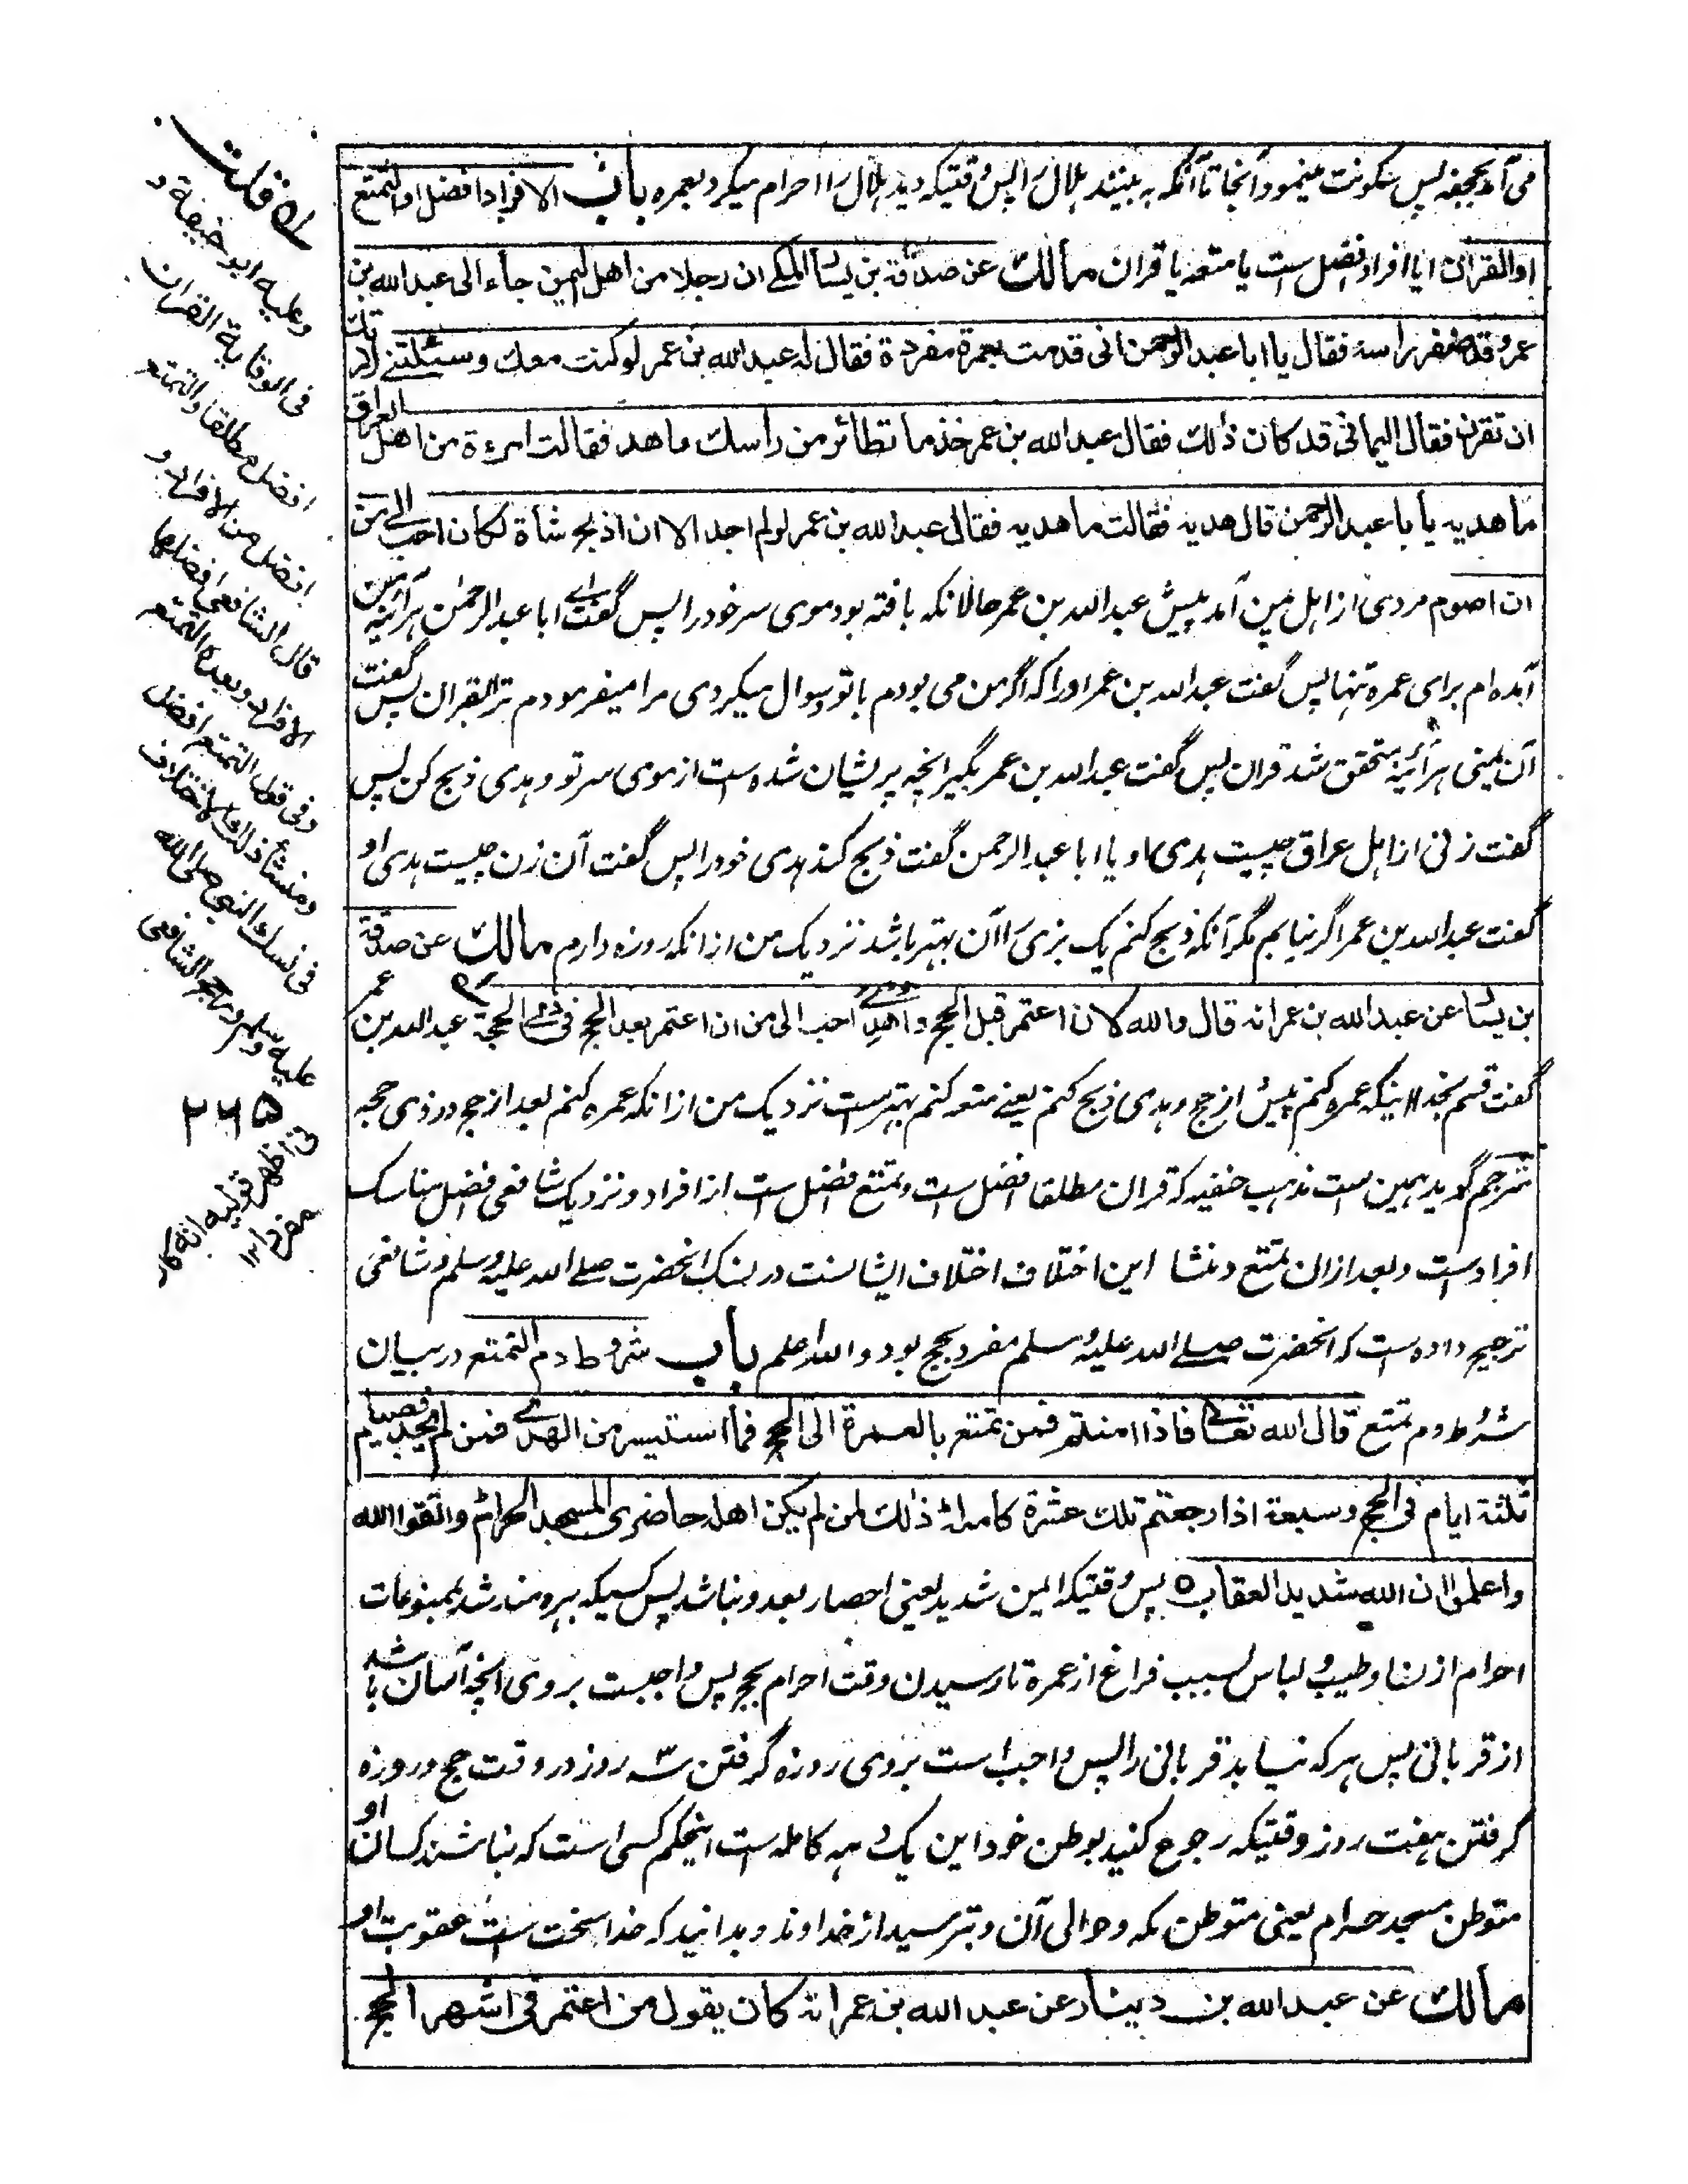 می آمد بجحفه پس سکونت مینمود آنجا تا آنکه به بینند هلال را پس وقتیکه دید هلال را احرام میکرد بعمره باب الافراد افضل او التمتع
او القران ایا افراد افضل است یا متعه یا قران مالك عن صدقة بن يسار المكي ان رجلا من اهل اليمن جاء الى عبد الله بن
عمر وقد ضفر راسه فقال يا ابا عبد الرحمن اني قدمت بعمرة مفردة فقال له عبد الله بن عمر لو كنت معك وسئلتني لامرتك
ان تقرن فقال اليماني قد كان ذلك فقال عبد الله بن عمر خذ ما تطائر من راسك واهد فقالت امرءة من اهل العراق
ما هديه يا با عبد الرحمن قال هديه فقالت ما هديه فقال عبد الله بن عمر لو لم اجد الا ان اذبح شاة لكان احب الي من
ان اصوم مردی از اهل یمن آمد پیش عبد الله بن عمر حالانکه بافته بود موی سر خود را پس گفت ای ابا عبد الرحمن هرآئینه من
آمده ام برای عمره تنها پس گفت عبد الله بن عمر او را که اگر من می بودم با تو و سوال میکردی مرا میفرمودم ترا بقران پس گفت
آن یمنی هرآئینه متحقق شد قران پس گفت عبد الله بن عمر بگیر انچه پریشان شده است از موی سر تو و هدی ذبح کن پس
گفت زنی از اهل عراق چیست هدی او یا ابا عبد الرحمن گفت ذبح کند هدی خود را پس گفت آن زن چیست هدی او
گفت عبد الله بن عمر اگر نیابم مگر آنکه ذبح کنم یک بزی را آن بهتر باشد نزدیک من از انکه روزه دارم مالك عن صدقة
بن يسار عن عبد الله بن عمر انه قال والله لان اعتمر قبل الحج واهدي احب الي من ان اعتمر بعد الحج في ذي الحجة عبد الله بن عمر
گفت قسم بخدا اینکه عمره کنم پیش از حج و هدی ذبح کنم یعنے متعه کنم بهتر است نزدیک من از انکه عمره کنم بعد از حج در ذی حجه
مترجم گوید همین است مذهب حنفیه که قران مطلقا افضل است و تمتع افضل است از افراد و نزدیک شافعی افضل مناسک
افراد است و بعد ازان تمتع و منشا این اختلاف اختلاف ایشانست در نسک انحضرت صلے الله علیه وسلم و شافعی
ترجیح داده است که انحضرت صلے الله علیه وسلم مفرد بحج بود والله اعلم باب شروط دم التمتع در بیان
شروط دم تمتع قال الله تعالى فاذا امنتم فمن تمتع بالعمرة الى الحج فما استيسر من الهدي فمن لم يجد فصيام
ثلثة ايام في الحج وسبعة اذا رجعتم تلك عشرة كاملة ذلك لمن لم يكن اهله حاضري المسجد الحرام واتقوا الله
واعلموا ان الله شديد العقاب ه پس وقتیکه ایمن شدید یعنی احصار بعدو نباشد پس کسیکه بهره مند شد بممنوعات
احرام از نسا و طیب و لباس بسبب فراغ از عمره تا رسیدن وقت احرام بحج پس واجبست بر وی انچه آسان باشد
از قربانی پس هر که نیابد قربانی را پس واجب است بر وی روزه گرفتن سه روز در وقت حج و روزه
گرفتن هفت روز وقتیکه رجوع کنید بوطن خود این یک دهه کامله است اینحکم کسی است که نباشند کسان او
متوطن مسجد حرام یعنی متوطن مکه و حوالی آن و بترسید از خداوند و بدانید که خدا سخت است عقوبت او
مالك عن عبد الله بن دينار عن عبد الله بن عمر انه كان يقول من اعتمر في اشهر الحج
قلت
وعليه ابو حنيفة و
في الوقاية القران
افضل مطلقا والتمتع
افضل من الافراد و
قال الشافعي افضلها
الافراد وبعده التمتع
وفي قول التمتع افضل
ومنشأ ذلك الاختلاف
في نسك النبي صلى الله
عليه وسلم ورجح الشافعي
۲۶۵
في اظهر قوليه انه كان
مفردا ۱۲